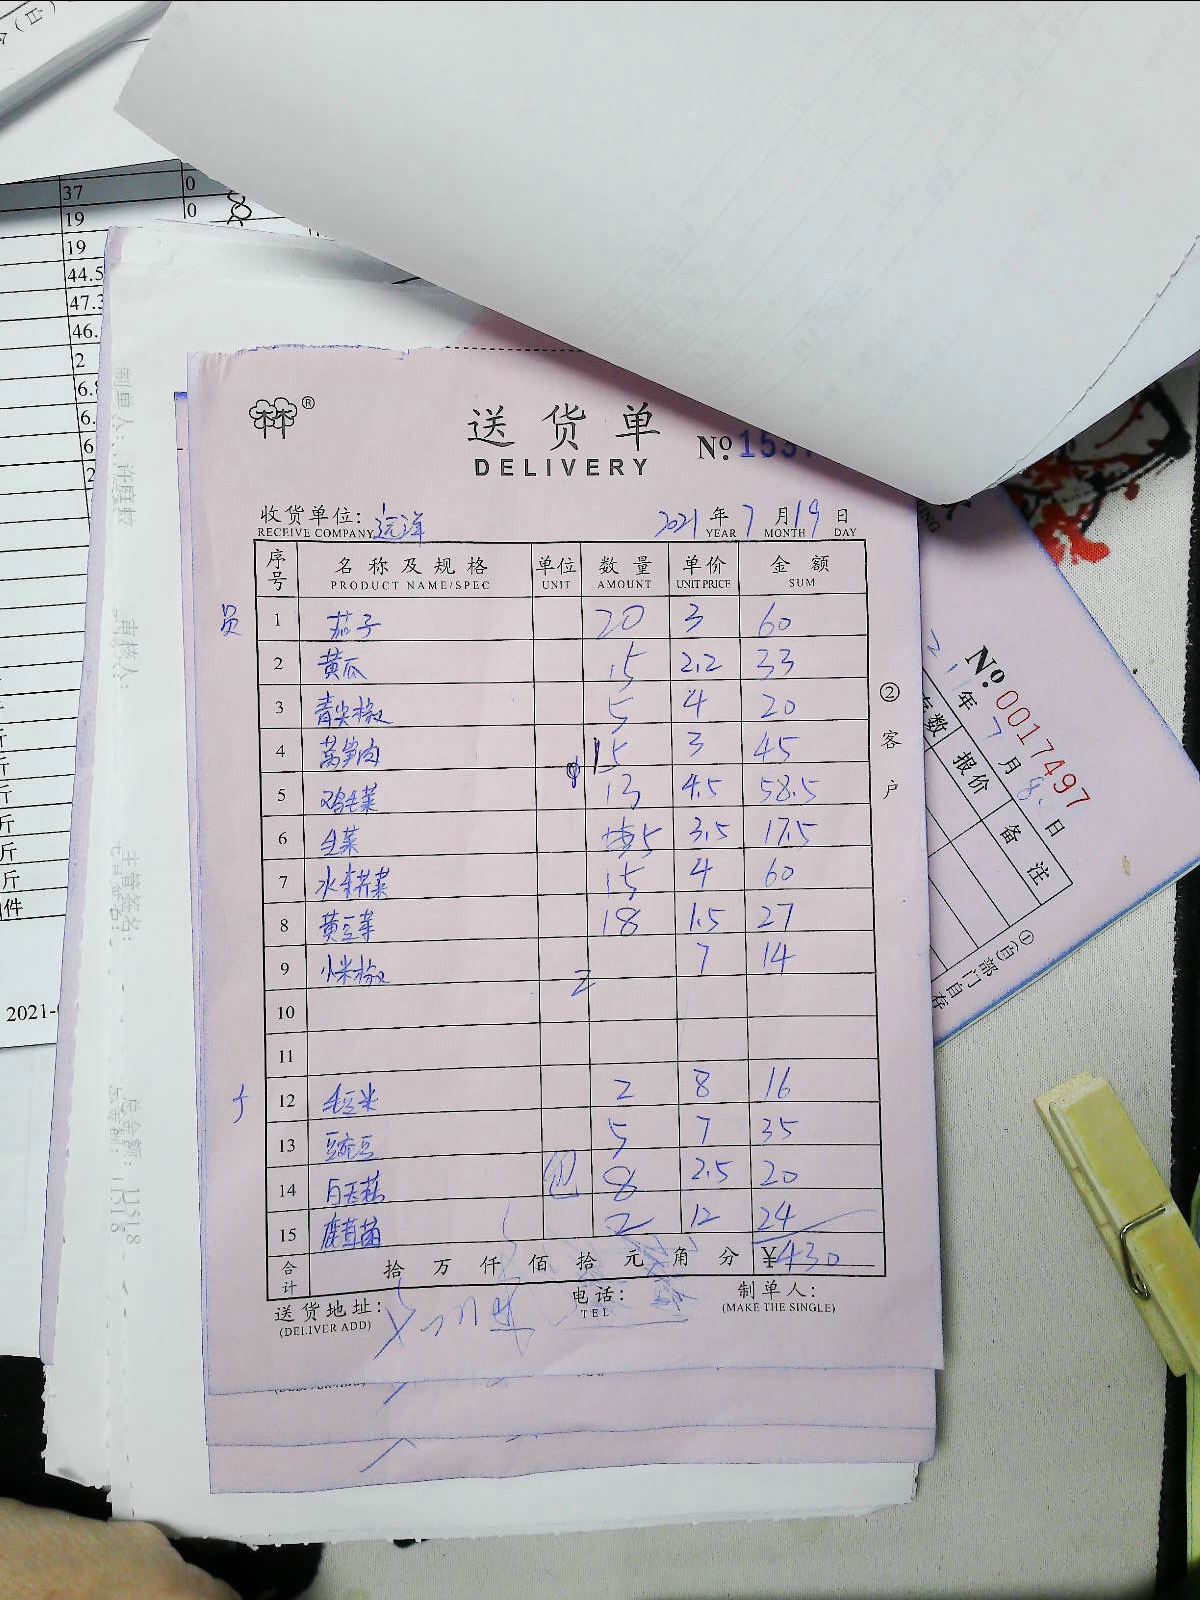 37 0
19 0
19
44.5
47.3
46.
2
6.8
6.
6
2
斤
斤
斤
斤
斤
斤
件
2021-
制单人:
审核人:
主管签名:
总金额: 11518
®
送货单
DELIVERY
№ 1537
收货单位: 远洋 2021 年 7 月 19 日
RECEIVE COMPANY YEAR MONTH DAY
序号 名称及规格 单位 数量 单价 金额
PRODUCT NAME/SPEC UNIT AMOUNT UNIT PRICE SUM
员 1 茄子 20 3 60
2 黄瓜 15 2.2 33
3 青尖椒 5 4 20
4 莴笋肉 15 3 45
5 鸡毛菜 13 4.5 58.5
6 生菜 5 3.5 17.5
7 水芹菜 15 4 60
8 黄豆芽 18 1.5 27
9 小米椒 2 7 14
10
11
12 毛豆米 2 8 16
13 豌豆 5 7 35
14 包 8 2.5 20
15 鹿茸菌 2 12 24
合计 拾 万 仟 佰 拾 元 角 分 ¥430
送货地址: 电话: 制单人:
(DELIVER ADD) TEL (MAKE THE SINGLE)
②客户
№ 0017497
21 年 7 月 8 日
数 报价 备注
①(白)部门自存